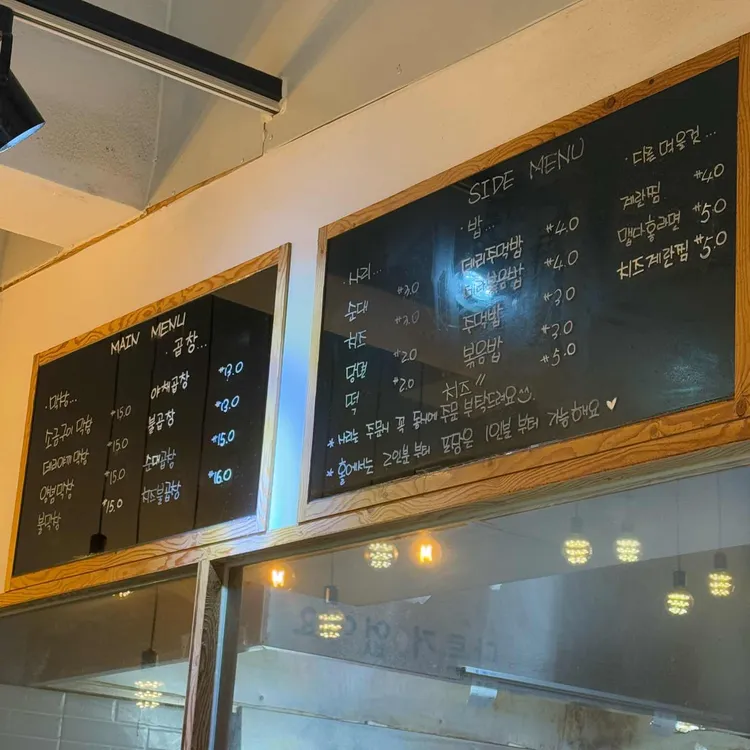 MAIN MENU
· 막창...
소금구이 막창 ₩15.0
데리야끼 막창 ₩15.0
양념막창 ₩15.0
불막창 ₩15.0
· 곱창...
야채곱창 ₩13.0
불곱창 ₩13.0
순대곱창 ₩15.0
치즈불곱창 ₩16.0
SIDE MENU
· 사리...
순대 ₩3.0
치즈 ₩3.0
당면 ₩2.0
떡 ₩2.0
· 밥...
데리주먹밥 ₩4.0
데리볶음밥 ₩4.0
주먹밥 ₩3.0
볶음밥 ₩3.0
치즈 〃 ₩5.0
· 다른 먹을것...
계란찜 ₩4.0
맵다홍라면 ₩5.0
치즈계란찜 ₩5.0
* 사리는 주문시 꼭 동시에 주문 부탁드려요
* 홀에서는 2인분 부터 포장은 1인분 부터 가능해요 ♥